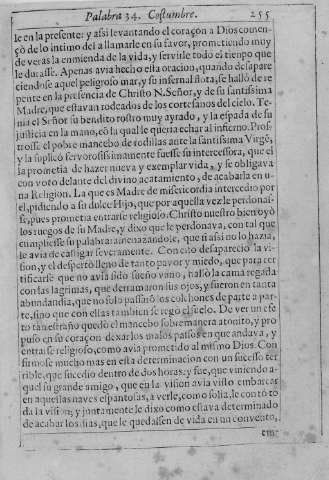 Palabra 34. Costumbre. 255
le en la presente: y assi levantando el coraçon a Dios comen-
çò de lo intimo del a llamarle en su favor, prometiendo muy
de veras la enmienda de la vida, y servirle todo el tiempo que
le durasse. Apenas avia hecho esta oracion, quando desapare
ciendose aquel peligroso mar, y su infernal flota, se hallò de re
pente en la presencia de Christo N. Señor, y de su santissima
Madre, que estavan rodeados de los cortesanos del cielo. Te-
nia el Señor su bendito rostro muy ayrado, y la espada de su
justicia en la mano, cõ la qual le queria echar al infierno. Pros
trosse el pobre mancebo de rodillas ante la santissima Virgẽ,
y la suplicò fervorosissimamente fuesse su intercessora, que el
la prometia de hazer nueva y exemplar vida, y se obligava
con voto delante del divino acatamiento, de acabarla en u-
na Religion. La que es Madre de misericordia intercedio por
el, pidiendo a su dulce Hijo, que por aquella vez le perdonas-
se, pues prometia entrarse religioso: Christo nuestro bien oyò
los ruegos de su Madre, y dixo que le perdonava, con tal que
cumpliesse su palabra: amenazandole, que si assi no lo hazia,
le avia de castigar severamente. Con esto desapareciò la vi-
sion, y el despertò lleno de tanto pavor y miedo, que para cer
tificarse que no avia sido sueño vano, hallò la cama regada
con las lagrimas, que derramaron sus ojos, y fueron en tanta
abundandia, que no solo passarõ los colchones de parte a par-
te, sino que con ellas tambien se regò el suelo. De ver un efe
to tan estraño quedò el mancebo sobremanera atonito, y pro
puso en su coraçon dexar los malos passos en que andava, y
entrarse religioso, como avia prometido al mismo Dios. Con
firmose mucho mas en esta determinacion con un sucesso ter
rible, que sucedio dentro de dos horas: y fue, que viniendo a-
quel su grande amigo, que en la vision avia visto embarcar
en aquellas naves espantosas, a verle, como solia, le contò to
da la vision; y juntamente le dixo como estava determinado
de acabar los dias, que le quedassen de vida en un convento,